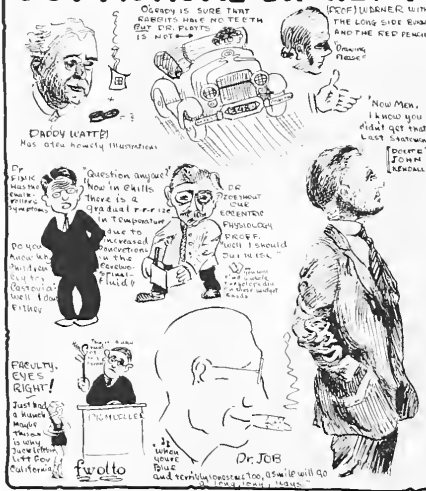 O'GRADY IS SURE THAT
RABBITS HAVE NO TEETH
BUT DR. PLATTS
IS NOT
(PROF) WARNER WITH
THE LONG SIDE BURNS
AND THE RED PENCIL
"Drawing
Please"
DADDY WATT(?)
Has often homely Illustrations
"Now Men,
I know you
didn't get that
Last Statement"
DOCTOR
JOHN
KENDALL
Dr
FINK
Has the
symptoms
Do you
know why
children
cry for
Castoria?
Well I don't
Either
"Question anyone?"
"Now in chills
there is a
gradual r-r-r-ize
in Temperature
due to
increased
concretions
in the
cerebro-
spinal-
fluid"
DR
ZOETHOUT
OUR
ECCENTRIC
PHYSIOLOGY
PROFF.
Well I should
Say
you will
find a whole
encyclopedia
in these
cards
FACULTY,
EYES
RIGHT!
Just had
a hunch
Maybe
this
is why
Jack
Left For
California
fwolto
Dr. JOB
If
when
you're
Blue
and terribly lonesome too, a smile will go
a long, long, ways.